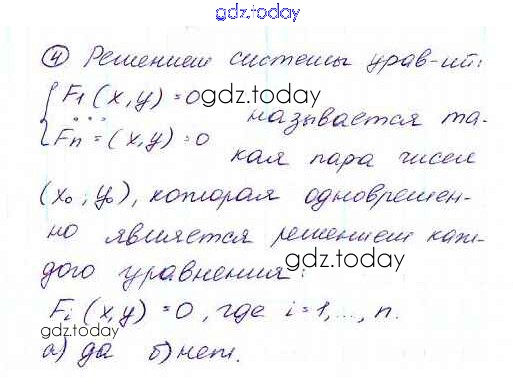 gdz.today
④ Решением системы урав-ий:
{ F₁(x,y) = 0
gdz.today
...
называется та-
Fn = (x,y) = 0
кая пара чисел
(x₀; y₀), которая одновремен-
но является решением каж-
gdz.today
дого уравнения:
Fᵢ(x,y) = 0, где i=1,..., n.
gdz.today
а) да б) нет.